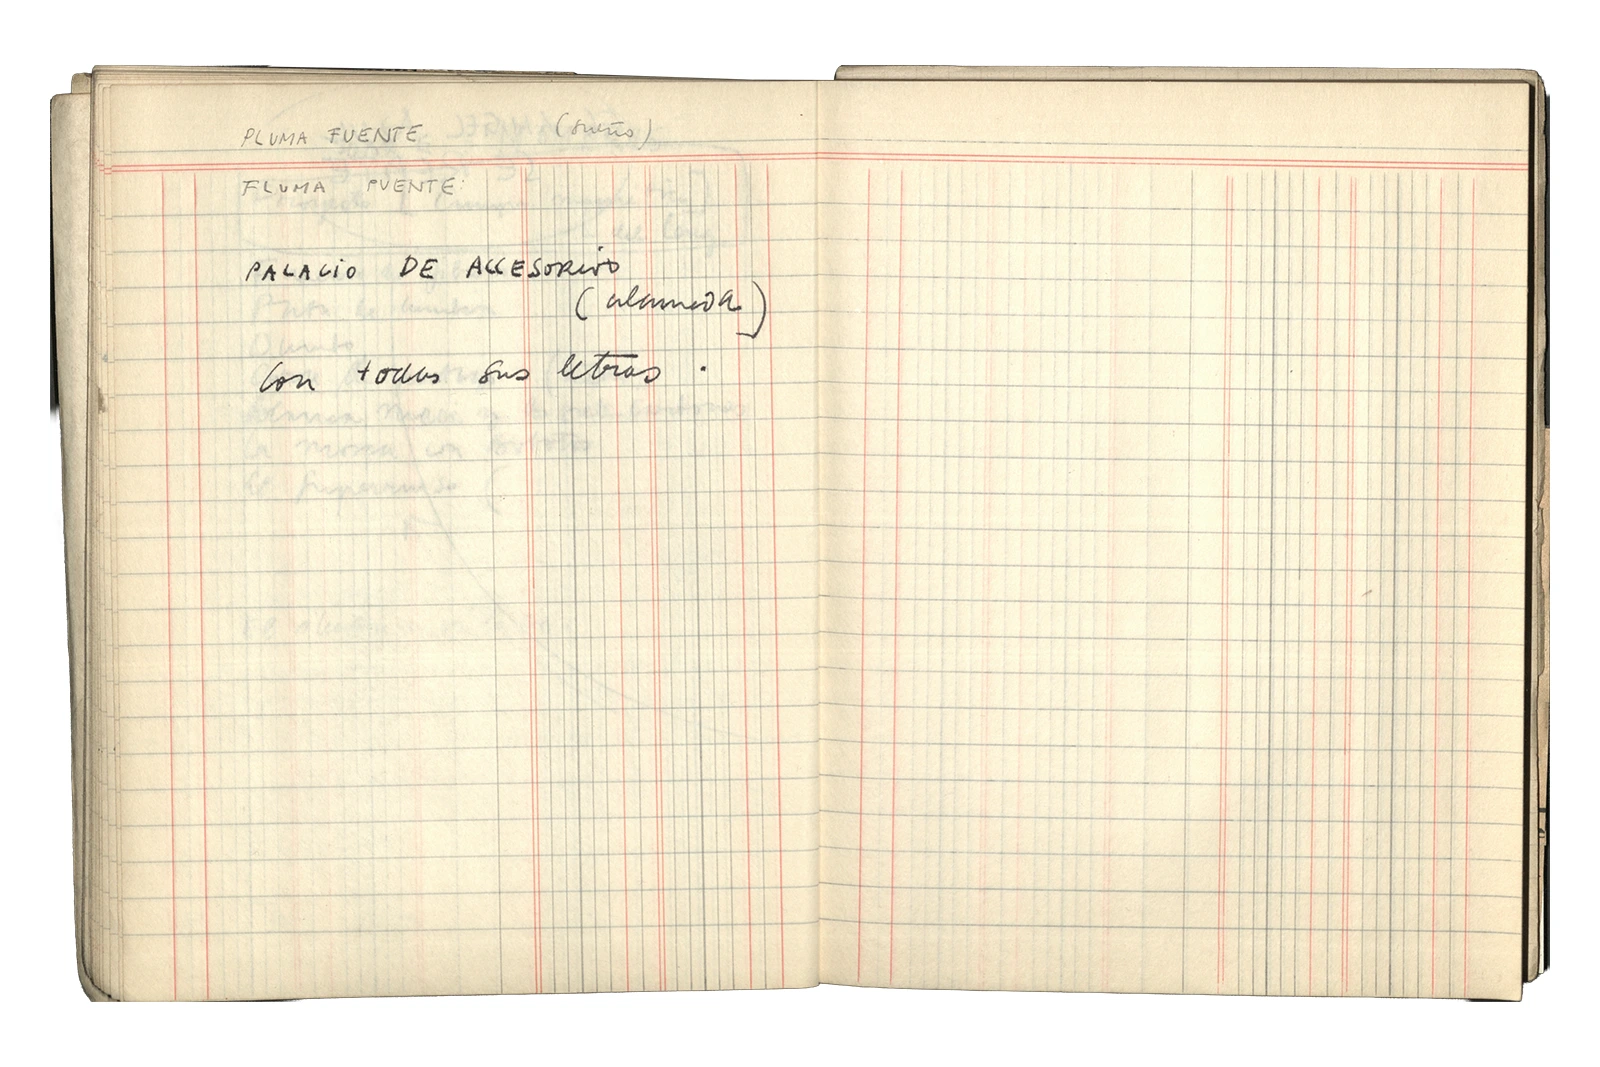 PLUMA FUENTE (sueño)
FLUMA PUENTE:
PALACIO DE ACCESORIOS
(alameda)
Con todas sus letras.